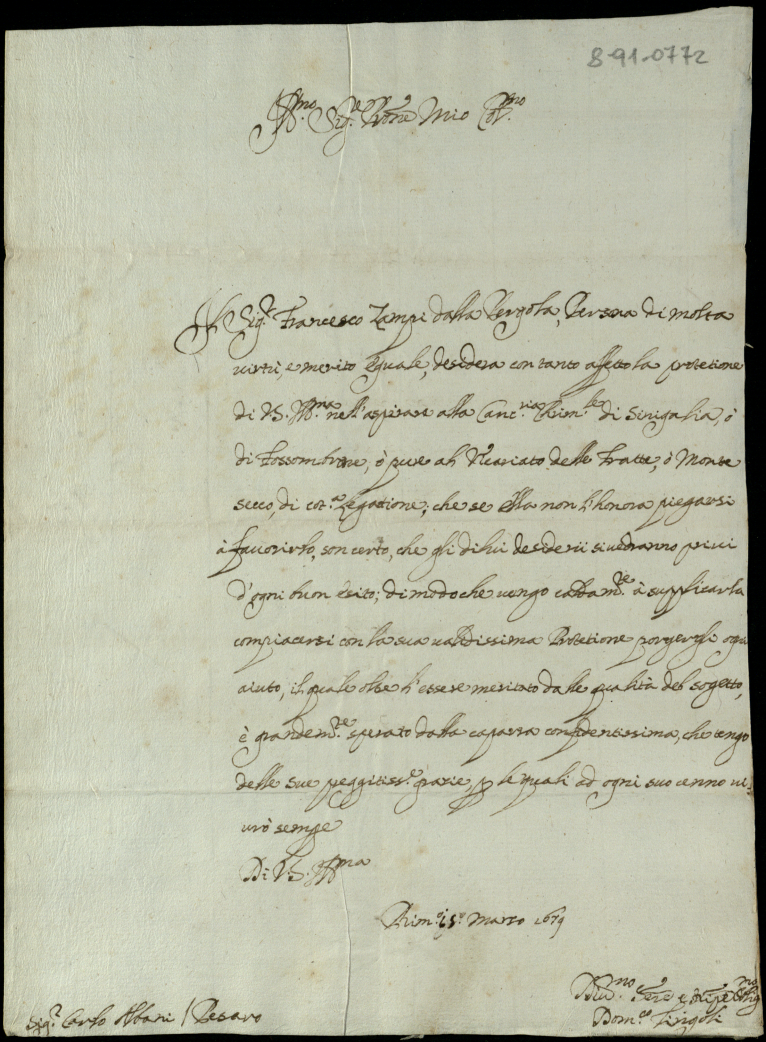 8-91-0772
Ill.mo Sig.re Prone Mio Col.mo
Il Sig.r Francesco Zampi dalla Pergola, Persona di molta
virtù, e merito eguale, desidera con tanto affetto la protetione
di V.S. Ill.ma nell'aspirare alla Canc.ria Crim.le di Sinigalia, ò
di Fossombrone, ò pure al Vicariato delle Fratte, ò Monte
secco, di cot.a Legatione; che se Ella non l'honora piegarsi
à favorirlo, son certo, che gli di lui desiderii si vedranno privi
d'ogni buon esito; di modo che vengo caldam.te à supplicarla
compiacersi con la sua validissima Protetione porgergli ogni
aiuto, il quale oltre l'essere meritato dalle qualità del sogetto,
è grandem.te sperato dalla caparra confidentissima, che tengo
delle sue grazie, p le quali ad ogni suo cenno vi-
vrò sempre
Di V.S. Ill.ma
Rim.i 15 Marzo 1679
Div.mo Ser.e e
Dom.co
Sig.r Carlo Albani / Pesaro